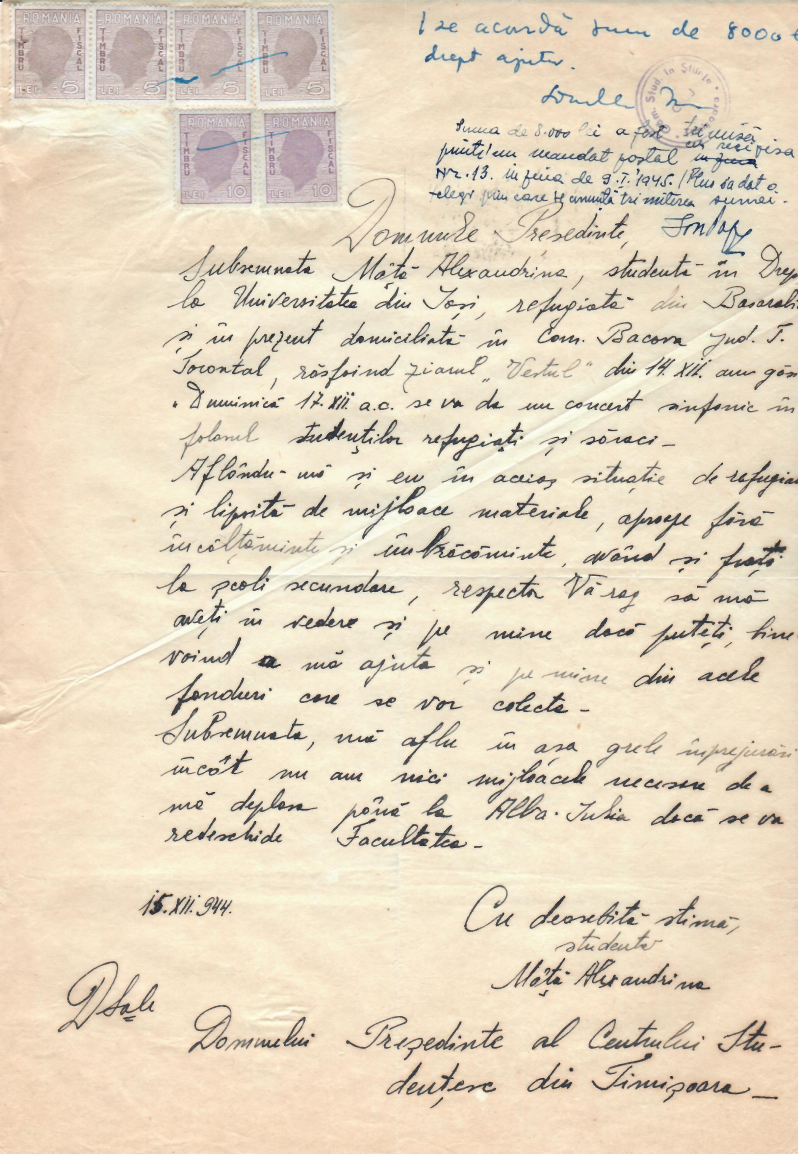 ROMANIA TIMBRU FISCAL LEI 5
ROMANIA TIMBRU FISCAL LEI 5
ROMANIA TIMBRU FISCAL LEI 5
ROMANIA TIMBRU FISCAL LEI 5
ROMANIA TIMBRU FISCAL LEI 10
ROMANIA TIMBRU FISCAL LEI 10
I se acordă suma de 8000
drept ajutor.
Suma de 8.000 lei a fost trimisă
printr'un mandat poștal cu recipisa
Nr. 13. în ziua de 9.I.1945. / Plus sa dat o
telegr prin care se anunță trimiterea sumei.
Domnule Președinte,
Subsemnata Mâță Alexandrina, studentă în Drep
la Universitatea din Iași, refugiată din Basarabi
și în prezent domiciliată în Com. Bacova Jud. T.
Torontal, răsfoind ziarul „Vestul" din 14.XII. am găs
„Duminică 17.XII a.c. se va da un concert simfonic în
folosul studenților refugiați și săraci -
Aflându-mă și eu în aceiaș situație de refugiat
și lipsită de mijloace materiale, aproape fără
încălțăminte și îmbrăcăminte, având și frați
la școli secundare, respectos Vă rog să mă
aveți în vedere și pe mine dacă puteți, bine
voind a mă ajuta și pe mine din acele
fonduri care se vor colecta -
Subsemnata, mă aflu în așa grele împrejurări
încât nu am nici mijloacele necesare de a
mă deplasa până la Alba-Iulia dacă se va
redeschide Facultatea -
15.XII.944.
Cu deosebită stimă,
studenta
Mâță Alexandrina
D Sale
Domnului Președinte al Centrului Stu-
dențesc din Timișoara -